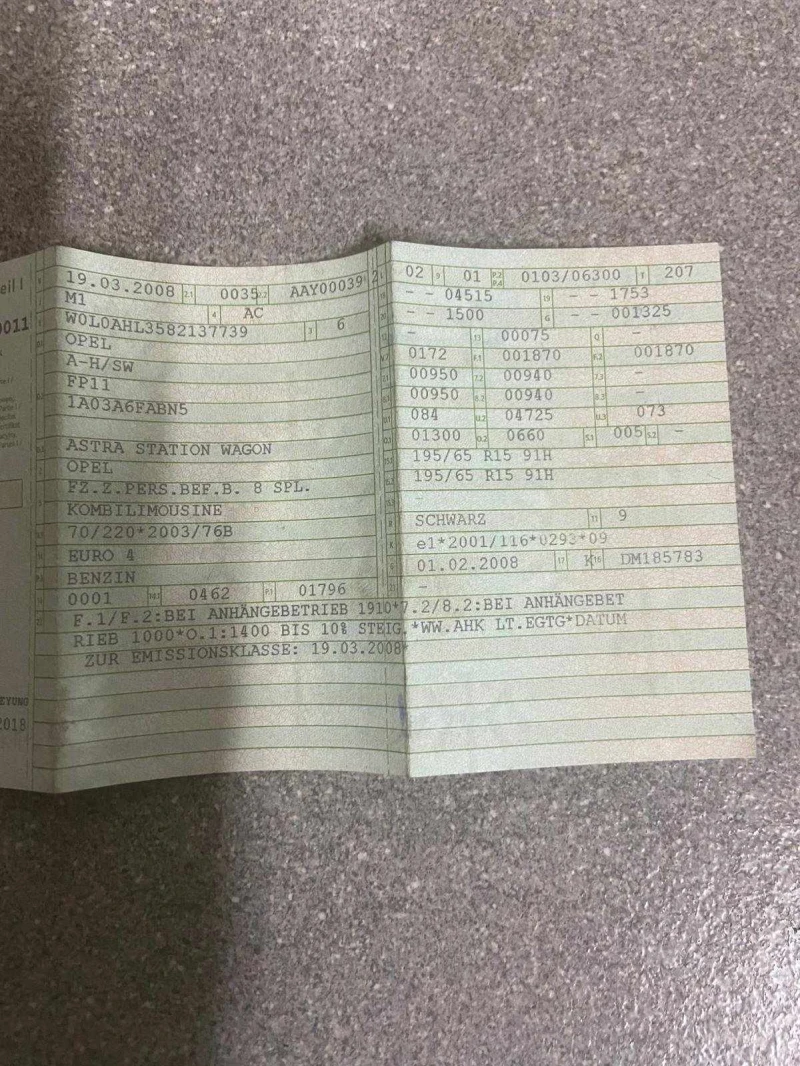 eil I
0011
EYUNG
2018
19.03.2008 2.1 0035 2.2 AAY00039 2
M1 4 AC
W0L0AHL3582137739 3 6
OPEL
A-H/SW
FP11
1A03A6FABN5
ASTRA STATION WAGON
OPEL
FZ.Z.PERS.BEF.B. 8 SPL.
KOMBILIMOUSINE
70/220*2003/76B
EURO 4
BENZIN
0001 0462 01796
02 9 01 P.2 P.4 0103/06300 T 207
- - 04515 19 - - 1753
- - 1500 G - - 001325
- 13 00075 Q -
0172 F.1 001870 F.2 001870
00950 7.2 00940 7.3 -
00950 8.2 00940 8.3 -
084 U.2 04725 U.3 073
01300 O.2 0660 S.1 005 S.2 -
195/65 R15 91H
195/65 R15 91H
-
SCHWARZ 11 9
e1*2001/116*0293*09
01.02.2008 17 K 16 DM185783
-
F.1/F.2:BEI ANHÄNGEBETRIEB 1910*7.2/8.2:BEI ANHÄNGEBET
RIEB 1000*O.1:1400 BIS 10% STEIG.*WW.AHK LT.EGTG*DATUM
ZUR EMISSIONSKLASSE: 19.03.2008*